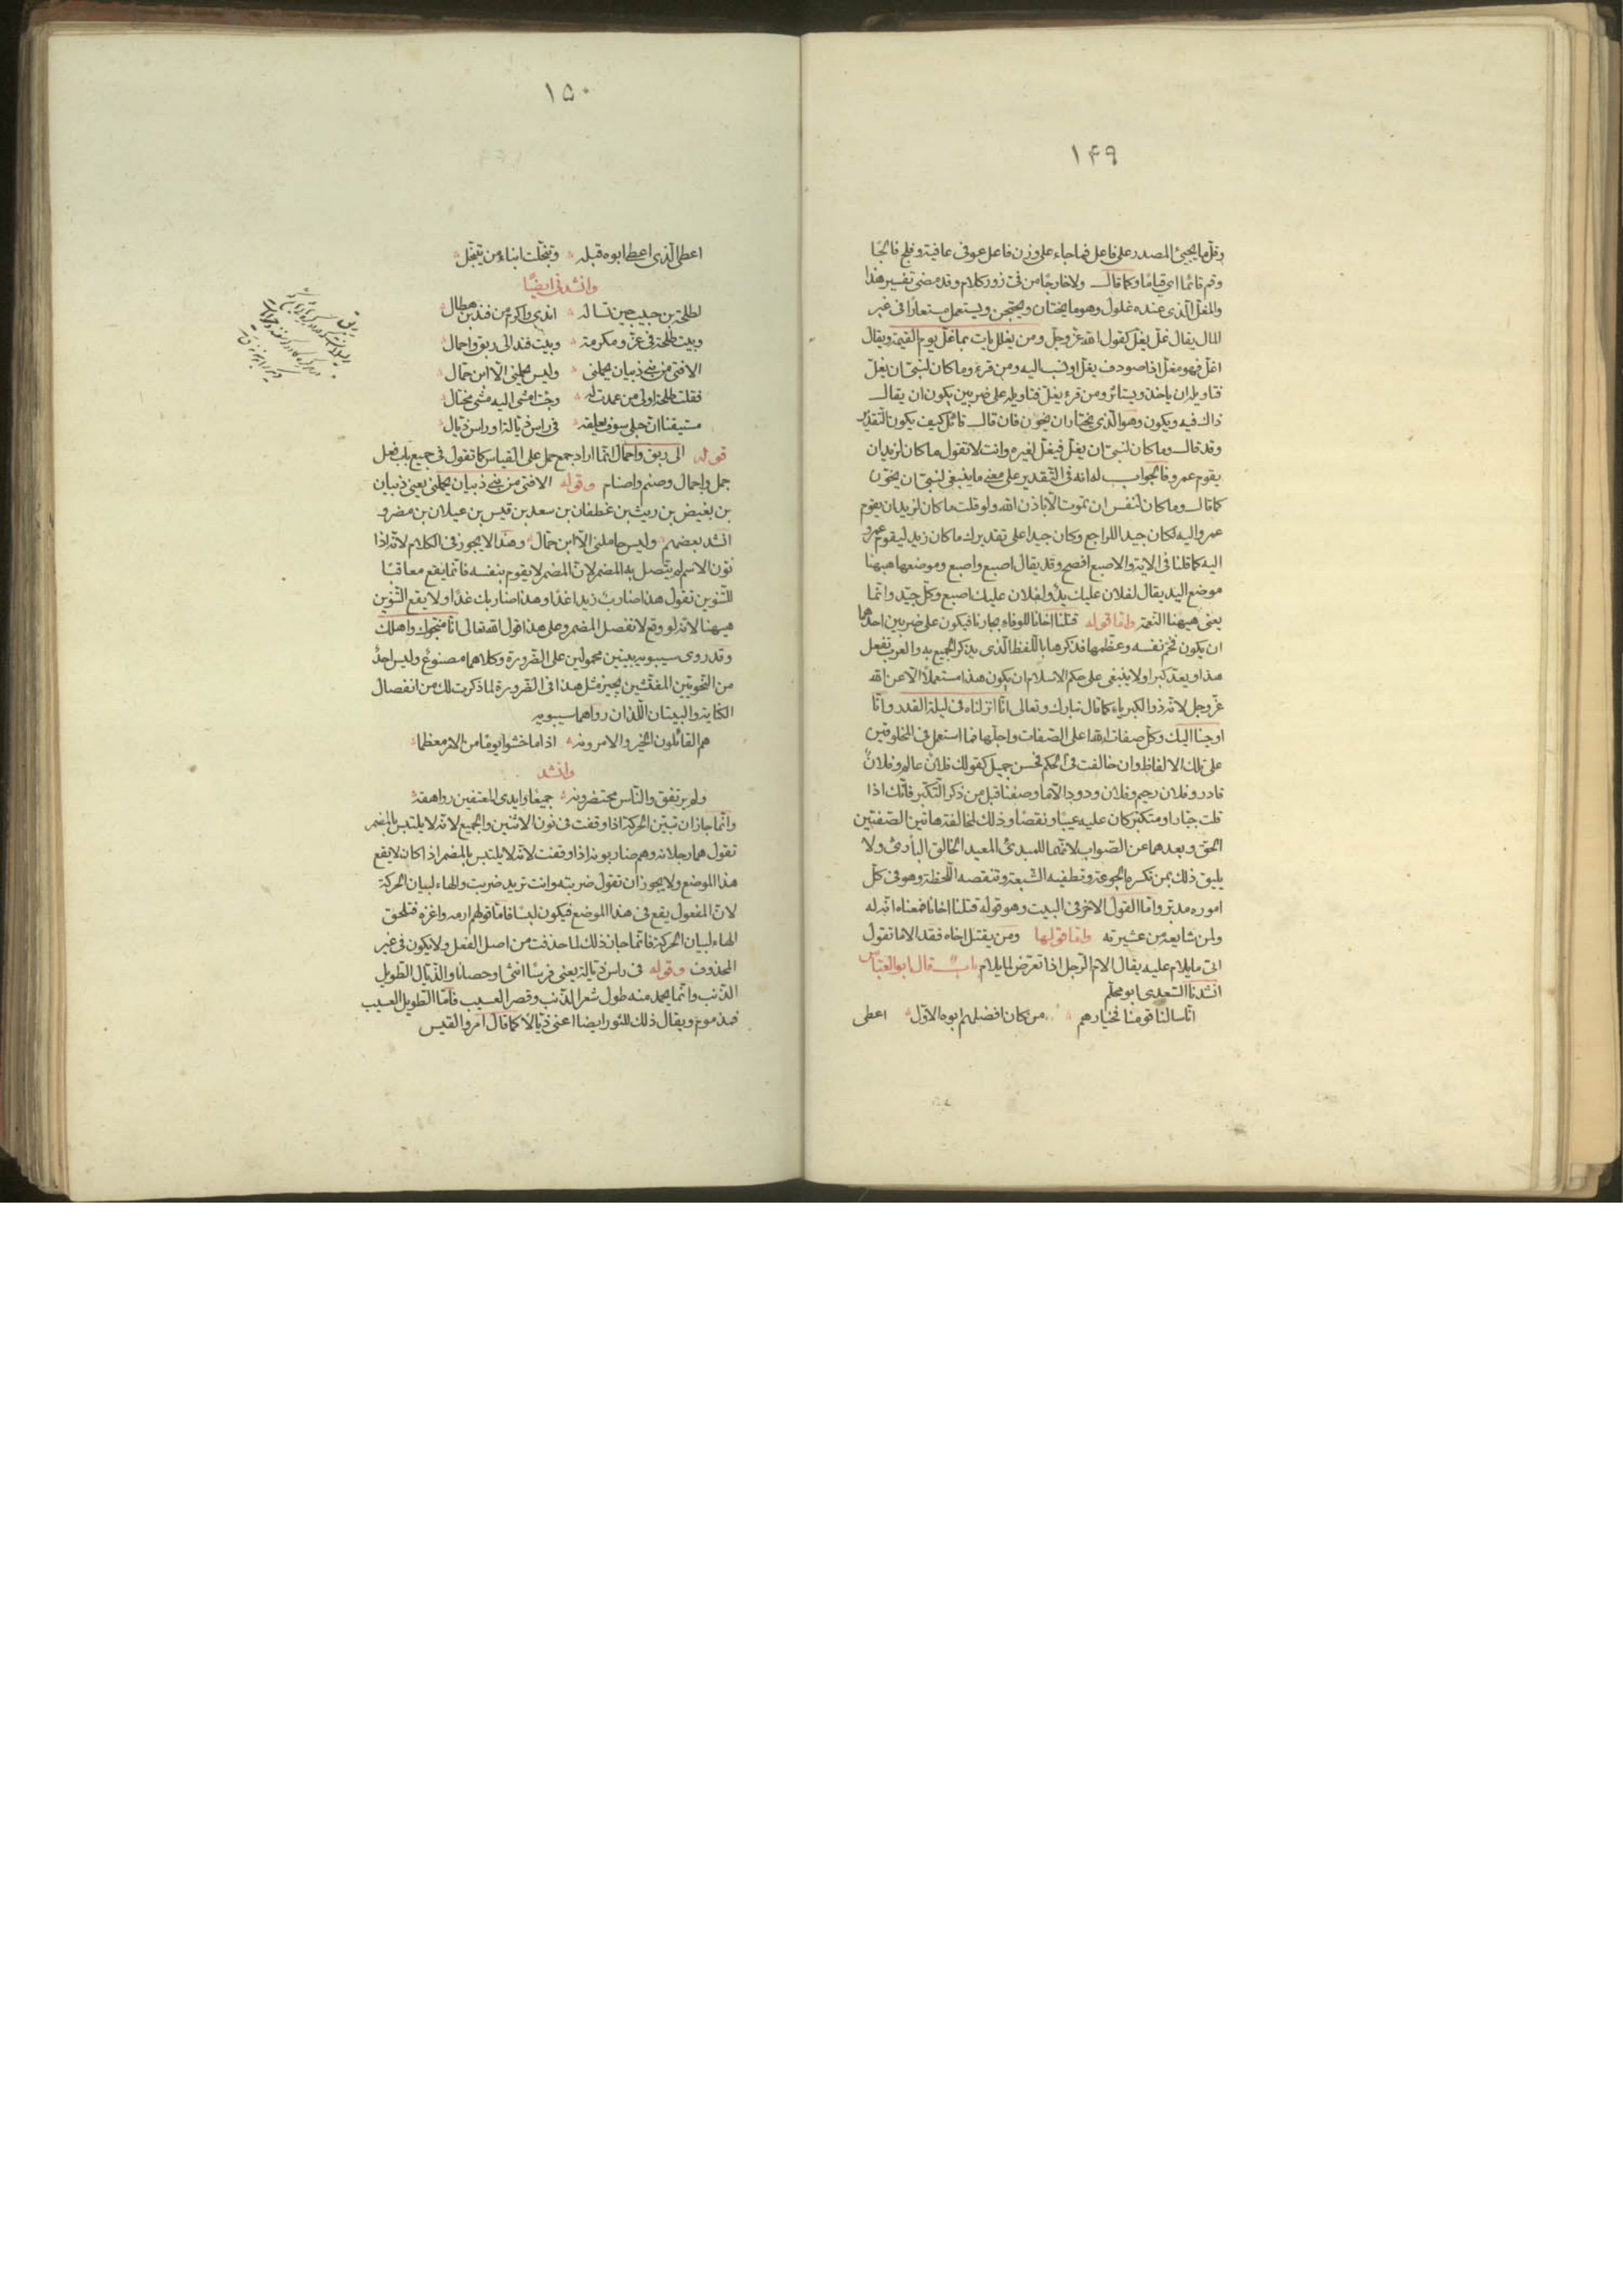 ١۴٩
وقلّ ما يجيئ المصدر على فاعل فما جاء على وزن فاعل عوفى عافية وفلج فالجا
وقم قائما اى قياما وكما قال ولا خارجا من فىّ زور كلام وقد مضى تفسير هذا
والمغلّ الّذى عنده غلول وهو ما يختان ويحتجن ويستعمل مستعارا فى غير
المال يقال غلّ يغلّ كقول الله عزّ وجلّ ومن يغلل يات بما غلّ يوم القيمة ويقال
اغلّ فهو مغلّ اذا صودف يغلّ او نسب اليه ومن قرء وما كان لنبىّ ان يغلّ
فتاويله ان ياخذ ويستاثر ومن قرء يغلّ فتاويله على ضربين يكون ان يقال
ذاك فيه ويكون وهو الّذى يختار ان يخوّن فان قال قائل كيف يكون التّقدير
وقد قال وما كان لنبىّ ان يغلّ فيغلّ لغيره وانت لا تقول ما كان لزيد ان
يقوم عمرو فالجواب له انه فى التّقدير على معنى ما ينبغى لنبىّ ان يخوّن
كما قال وما كان لنفس ان تموت الّا باذن الله ولو قلت ما كان لزيد ان يقوم
عمرو اليه لكان جيدا للراجع وكان جيدا على تقديرك ما كان زيد ليقوم عمرو
اليه كما قلنا فى الاية والاصبع افصح وقد يقال اصبع واصبع وموضعها هيهنا
موضع اليد يقال لفلان عليك يدٌ ولفلان عليك اصبع وكلّ جيّد وانّما
يعنى هيهنا النعمة وامّا قوله قتلنا اخانا للوفاء بجارنا فيكون على ضربين احدهما
ان يكون فخّم نفسه وعظّمها فذكرها باللّفظ الّذى يذكر الجميع به والعرب تفعل
هذا ويعدّ كبرا ولا ينبغى على حكم الاسلام ان يكون هذا مستعملا الّا عن الله
عزّ وجل لانّه ذو الكبرياء كما قال تبارك وتعالى انّا انزلناه فى ليلة القدر وانّا
اوحينا اليك وكلّ صفات الله اعلى الصّفات واجلّها فما استعمل فى المخلوقين
على تلك الالفاظ وان خالفت فى الحكم فحسن جميل كقولك فلان عالم وفلان
قادر وفلان رحيم وفلان ودود الّا ما وصفنا قبل من ذكر التّكبّر فانّك اذا
قلت جبّار او متكبّر كان عليه عيبا ونقصا وذلك لمخالفة هاتين الصّفتين
الحقّ وبعدهما عن الصّواب لانّهما للمبدئ المعيد الخالق البارئ ولا
يليق ذلك بمن تكسره الجوعة وتطغيه الشبعة وتنقصه اللّحظة وهو فى كلّ
اموره مدبّر وامّا القول الاخر فى البيت وهو قوله قتلنا اخانا فمعناه انّه له
ولمن شايعه من عشيرته وامّا قولها ومن يقتل اخاه فقد الاما تقول
اتى ما يلام عليه يقال الام الرّجل اذا تعرّض لما يلام باب قال ابو العبّاس
انشدنا السّعدى ابو محلّم
انّا سالنا قومنا فخيارهم من كان افضلهم ابوه الاوّل
اعطى
١۵٠
اعطى الّذى اعطى ابوه قبله وتبخّلت ابناء من يتبخّل
وانشدنى ايضًا
لطلحة بن حبيب حين تساله اندى واكرم من فند بن هطال
وبيت طلحة فى عزّ ومكرمة وبيت فند الى ربق واحمال
الا فتى من بنى ذبيان يحملنى وليس يحملنى الّا ابن حمّال
فقلت طلحة اولى من عمدت له وجئت امشى اليه مشى مختال
مستيقنا انّ حبلى سوف يعلقه فى راس ذيّالة او راس ذيّال
قوله الى ربق واحمال انّما اراد جمع حمل على القياس كما تقول فى جميع باب فعل
جمل واجمال وصنم واصنام وقوله الا فتى من بنى ذبيان يحملنى يعنى ذبيان
بن بغيض بن ريث بن غطفان بن سعد بن قيس بن عيلان بن مضر و
انشد بعضهم وليس حاملنى الّا ابن حمّال وهذا لا يجوز فى الكلام لانّه اذا
نوّن الاسم لم يتّصل به المضمر لانّ المضمر لا يقوم بنفسه فانّما يقع معاقبا
للتّنوين تقول هذا ضاربٌ زيدا غدًا وهذا ضاربك غدًا ولا يقع التّنوين
هيهنا لانّه لو وقع لانفصل المضمر وعلى هذا قول الله تعالى انّا منجّوك واهلك
وقد روى سيبويه بيتين محمولين على الضّرورة وكلاهما مصنوع وليس احدٌ
من النّحويّين المفتّشين يجيز مثل هذا فى الضّرورة لما ذكرت لك من انفصال
الكناية والبيتان اللّذان رواهما سيبويه
هم القائلون الخير والامرونه اذا ما خشوا يوما من الامر معظما
وانشد
ولم يرتفق والنّاس محتضرونه جميعا وايدى المعتفين رواهقه
وانّما جاز ان تبيّن الحركة اذا وقفت فى نون الاثنين والجميع لانّه لا يلتبس بالمضمر
تقول هما رجلانه وهم ضاربونه اذا وقفت لانّه لا يلتبس بالمضمر اذا كان لا يقع
هذا الموضع ولا يجوز ان تقول ضربته وانت تريد ضربت والهاء لبيان الحركة
لانّ المفعول يقع فى هذا الموضع فيكون لبسا فامّا قولهم ارمه واغزه فتلحق
الهاء لبيان الحركة فانّما جاز ذلك لما حذفت من اصل الفعل ولا يكون فى غير
المحذوف وقوله فى راس ذيّالة يعنى فرسًا انثى او حصانا والذّيّال الطّويل
الذّنب وانّما يحمد منه طول شعر الذّنب وقصر العسيب فامّا الطّويل العسيب
فمذموم ويقال ذلك للثّور ايضا اعنى ذيّالا كما قال امرؤ القيس
ربق